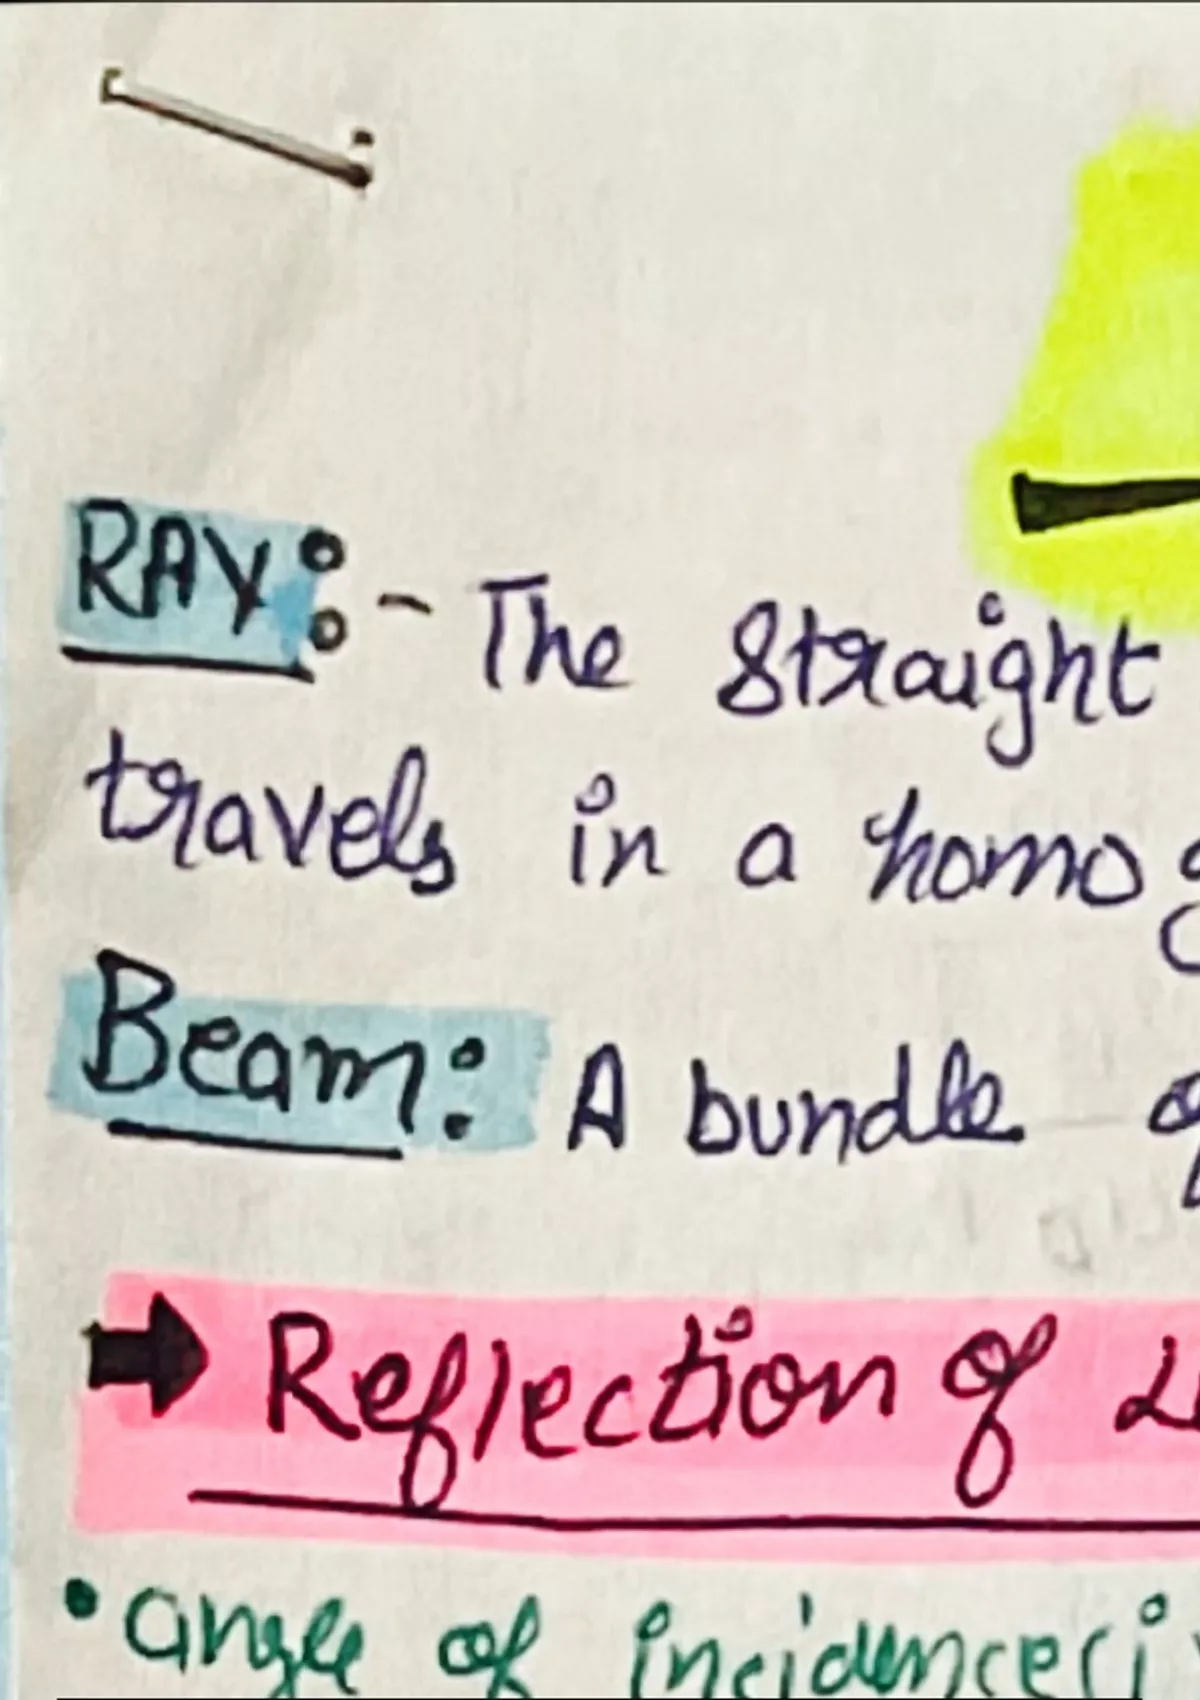 RAY:- The Straight
travels in a homog
Beam: A bundle of
→ Reflection of Li
• angle of incidence(i